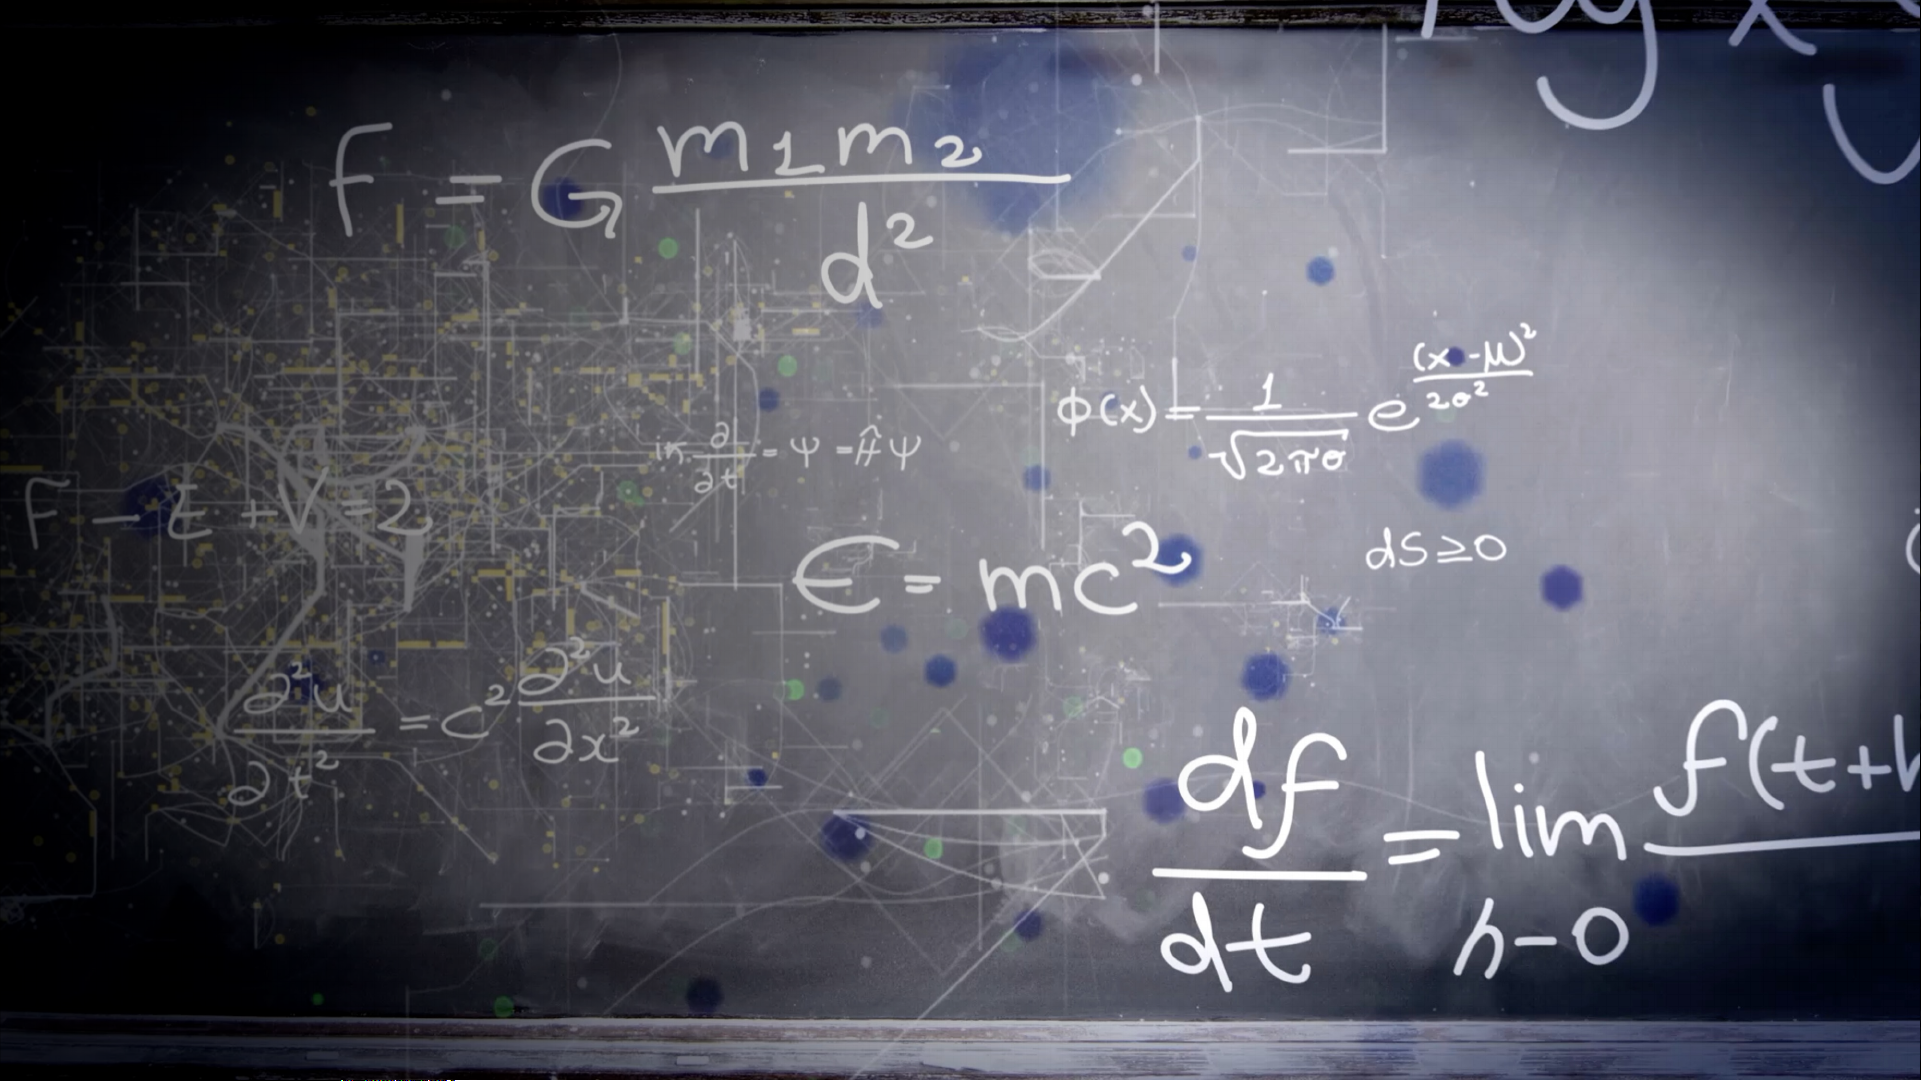 F = G m1m2 / d²
φ(x) = 1 / √2πσ e (x-μ)² / 2σ²
∂ / ∂t = Ψ = ĤΨ
F - E + V = 2
dS ≥ 0
E = mc²
∂²u / ∂t² = c² ∂²u / ∂x²
df / dt = lim h-0 f(t+h